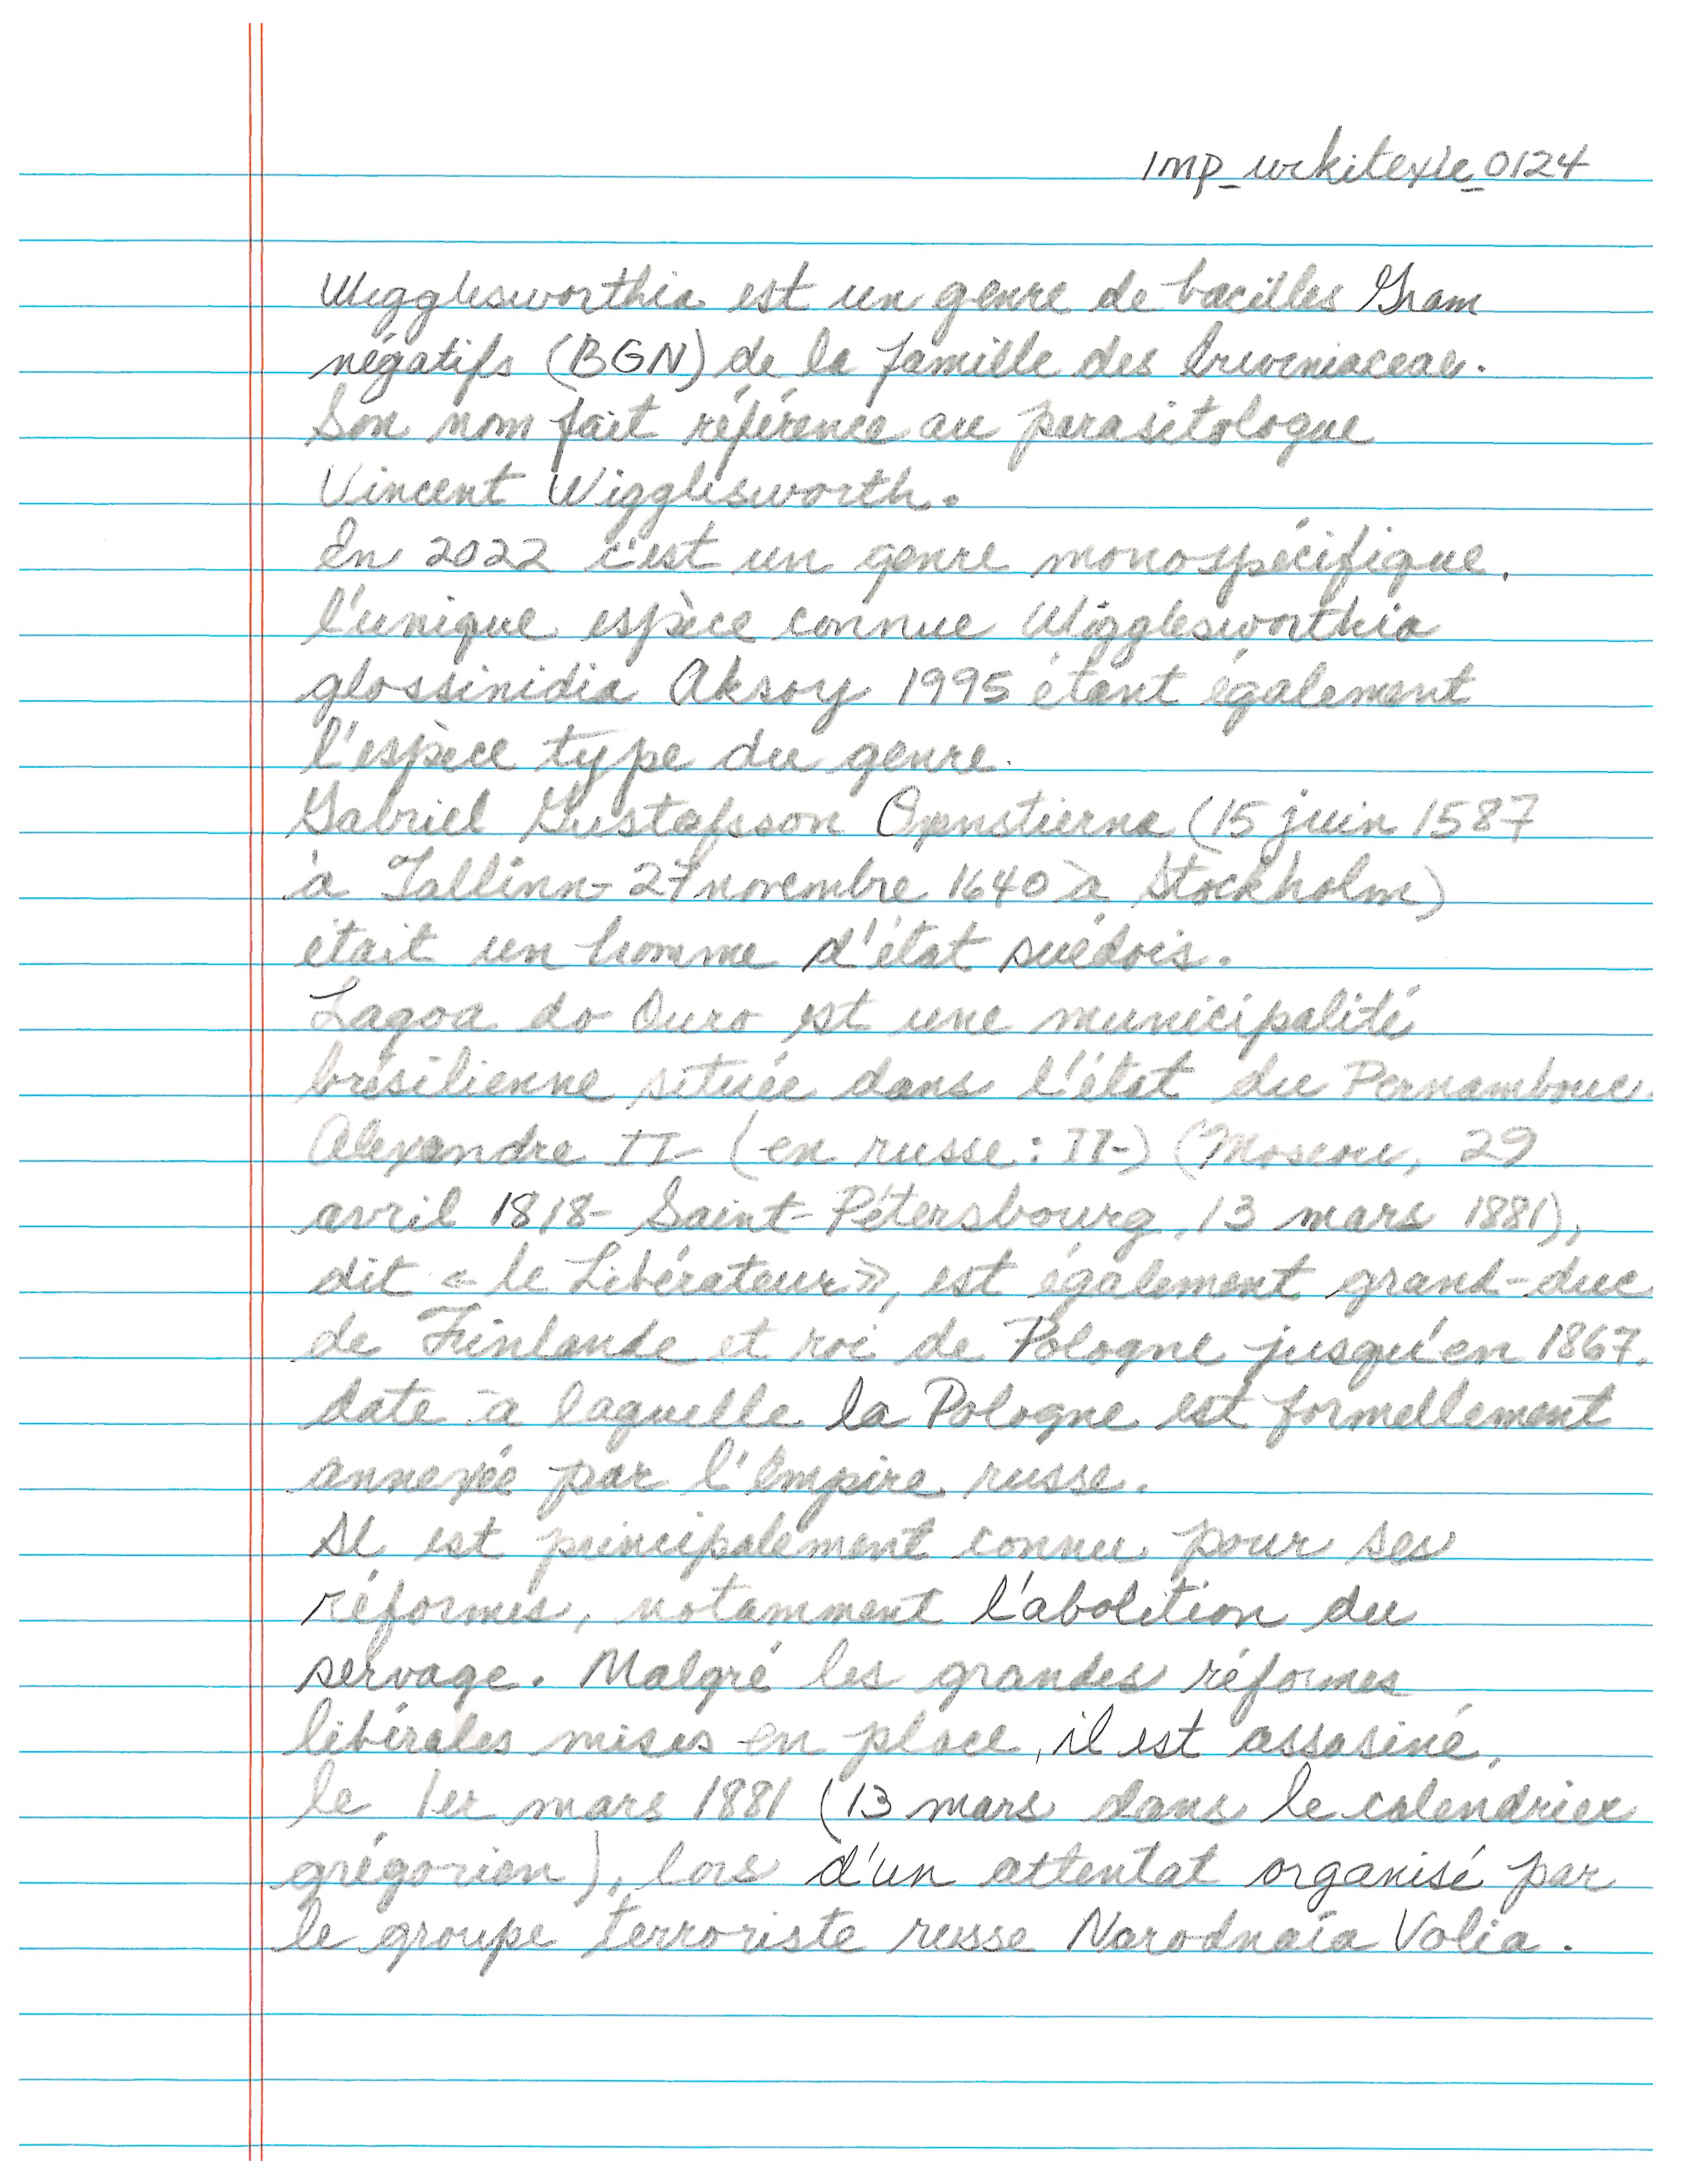 imp_wikitexte_0124
Wigglesworthia est un genre de bacilles Gram
négatifs (BGN) de la famille des Erwiniaceae.
Son nom fait référence au parasitologue
Vincent Wigglesworth.
En 2022 c'est un genre monospécifique,
l'unique espèce connue Wigglesworthia
glossinidia Aksoy 1995 étant également
l'espèce type du genre.
Gabriel Gustafsson Oxenstierna (15 juin 1587
à Tallinn - 27 novembre 1640 à Stockholm)
était un homme d'état suédois.
Lagoa do Ouro est une municipalité
brésilienne située dans l'état du Pernambouc.
Alexandre II (en russe : II-) (Moscou, 29
avril 1818 - Saint-Pétersbourg, 13 mars 1881),
dit « le Libérateur », est également grand-duc
de Finlande et roi de Pologne jusqu'en 1867,
date à laquelle la Pologne est formellement
annexée par l'Empire russe.
Il est principalement connu pour ses
réformes, notamment l'abolition du
servage. Malgré les grandes réformes
libérales mises en place, il est assasiné,
le 1er mars 1881 (13 mars dans le calendrier
grégorien), lors d'un attentat organisé par
le groupe terroriste russe Narodnaïa Volia.